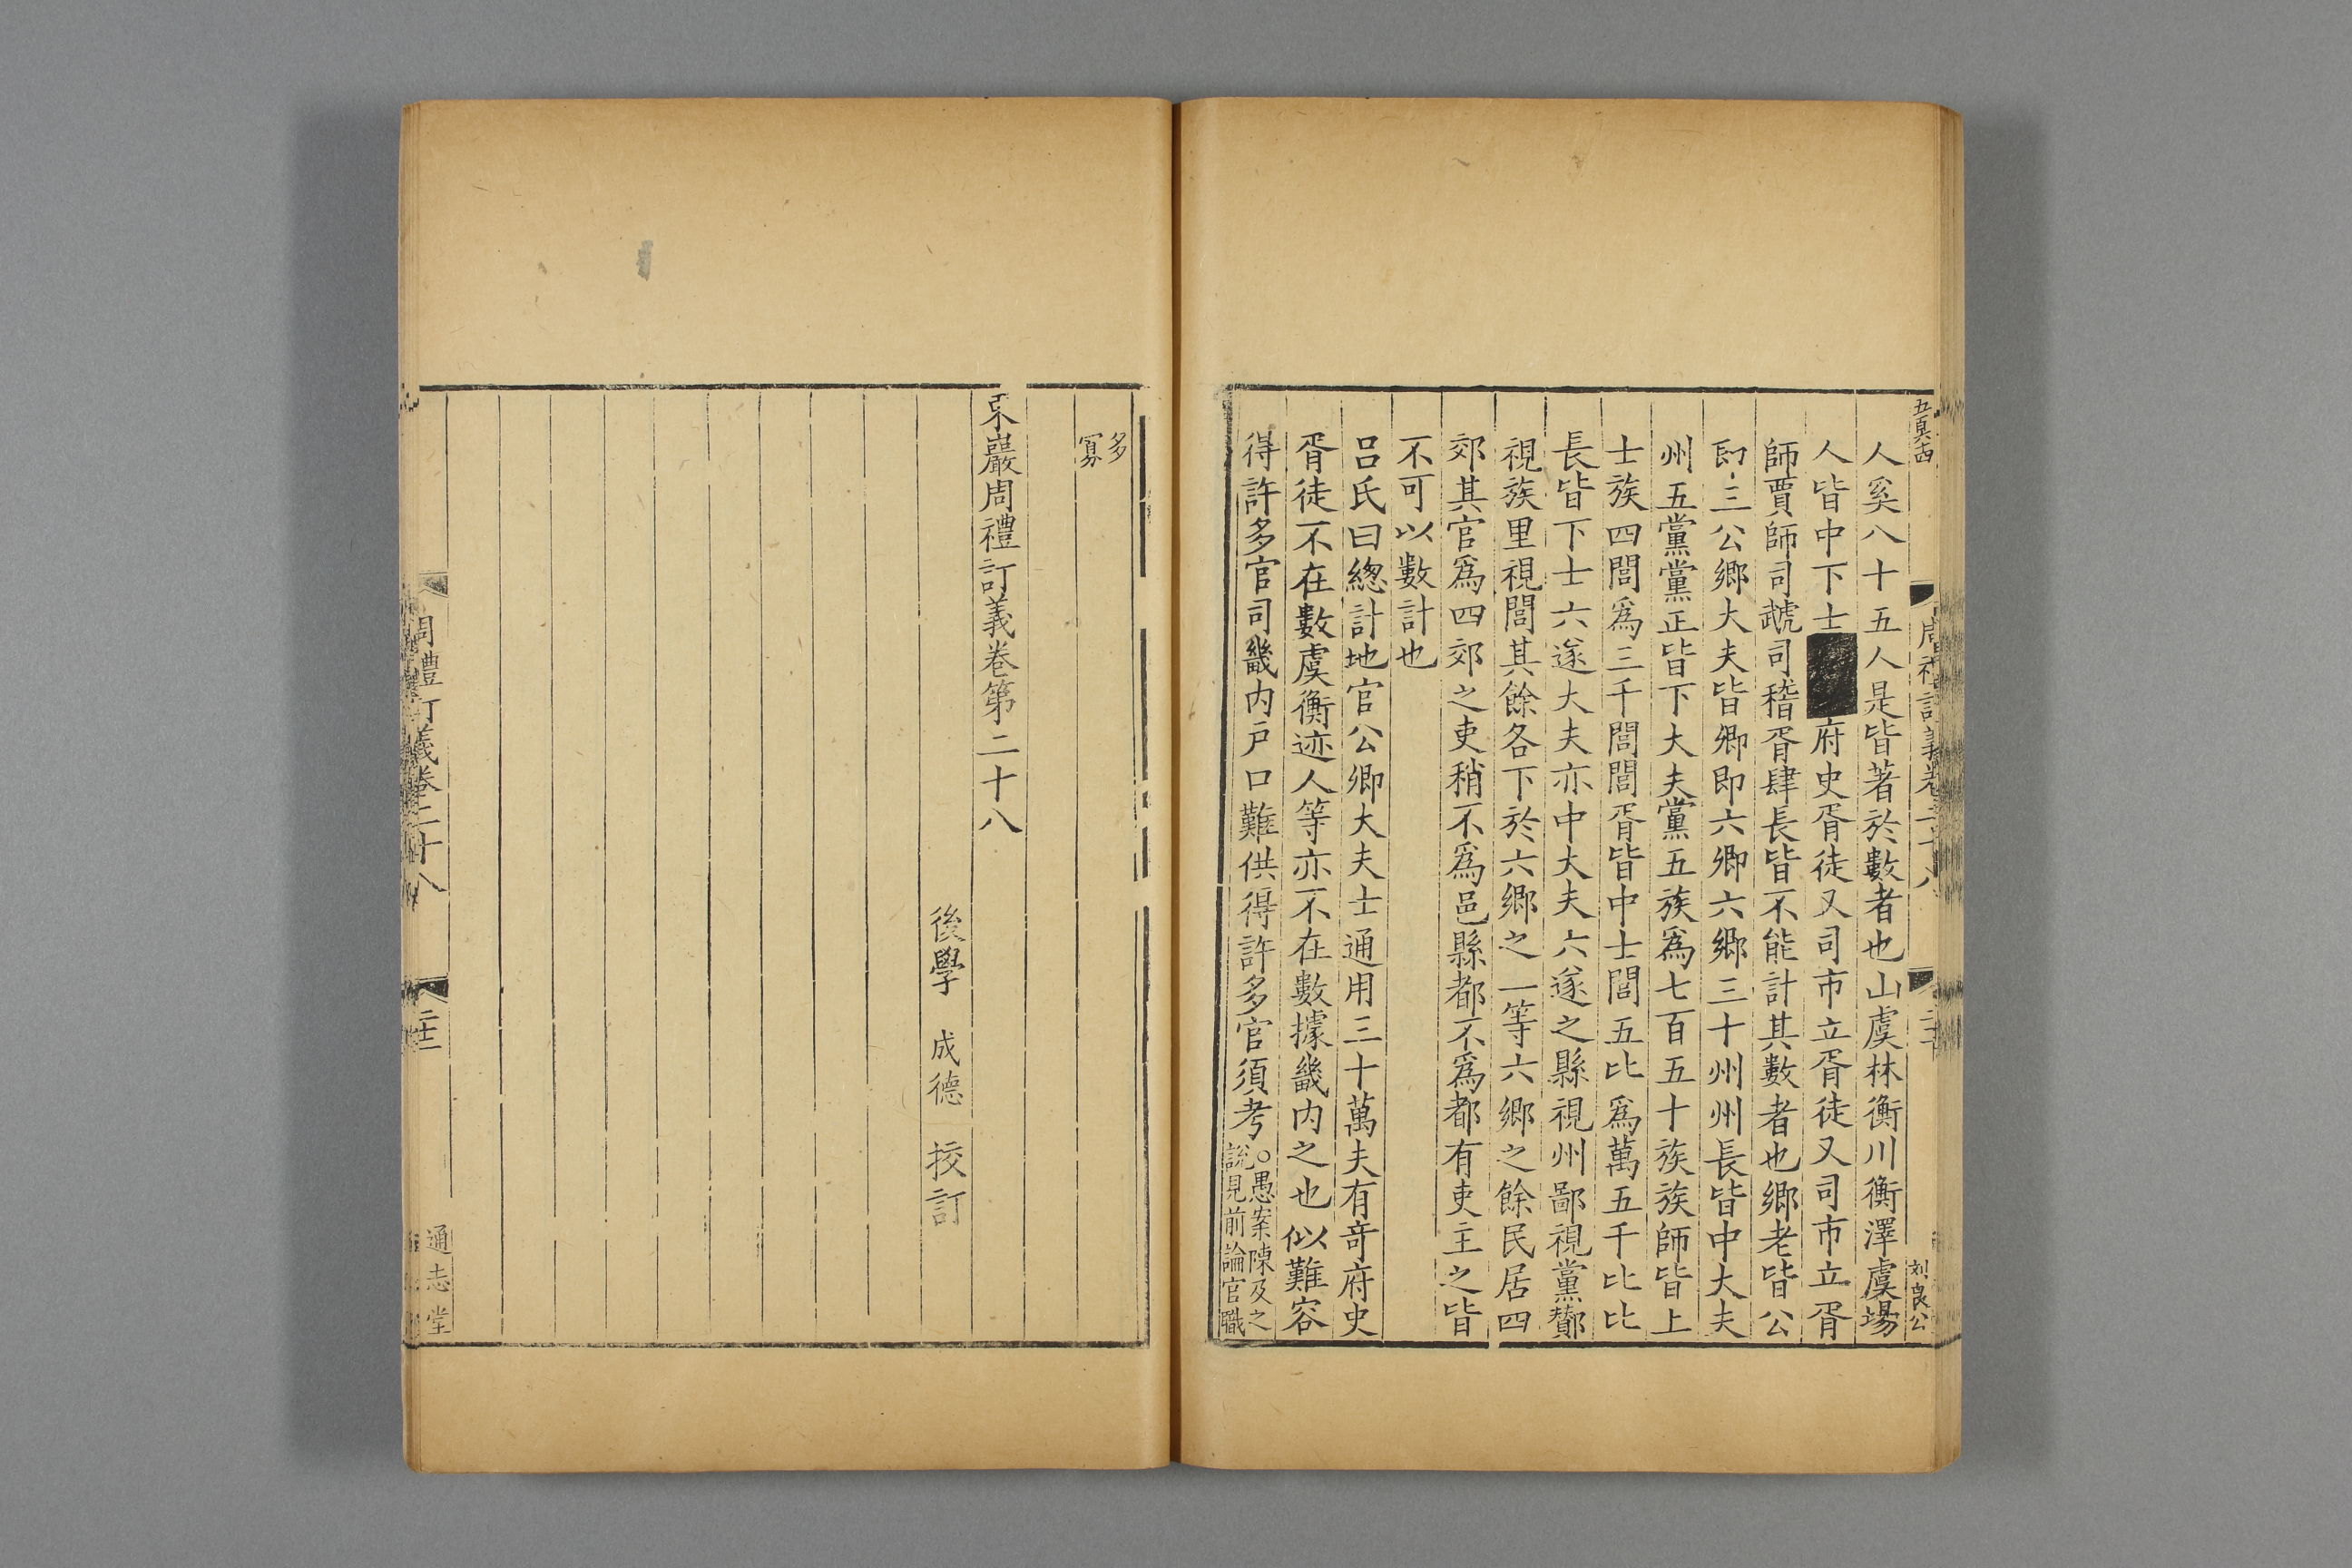 人奚八十五人是皆著於數者也山虞林衡川衡澤虞場
人皆中下士府史胥徒又司市立胥徒又司市立胥
師賈師司虣司稽胥肆長皆不能計其數者也鄉老皆公
即三公鄉大夫皆卿即六卿六鄉三十州州長皆中大夫
州五黨黨正皆下大夫黨五族爲七百五十族族師皆上
士族四閭爲三千閭閭胥皆中士閭五比爲萬五千比比
長皆下士六遂大夫亦中大夫六遂之縣視州鄙視黨酇
視族里視閭其餘各下於六鄉之一等六鄉之餘民居四
郊其官爲四郊之吏稍不爲邑縣都不爲都有吏主之皆
不可以數計也
呂氏曰緫計地官公卿大夫士通用三十萬夫有奇府史
胥徒不在數虞衡迹人等亦不在數據畿内之也似難容
得許多官司畿内戸口難供得許多官須考○愚案陳及之
說見前論官職
多
寡
東巖周禮訂義卷第二十八
後學 成德 挍訂
周禮訂義卷二十八
通志堂